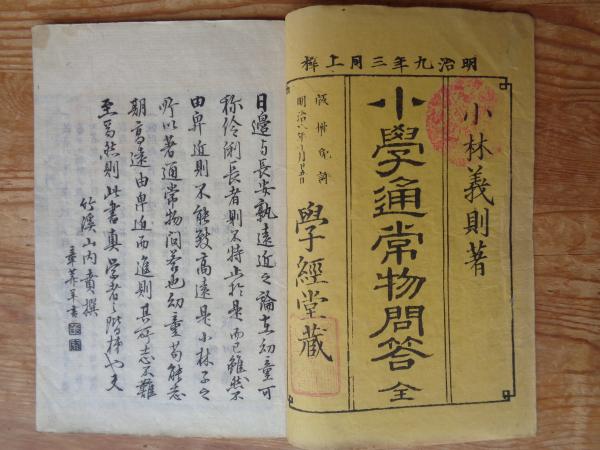 明治九年三月上梓
小林義則著
小學通常物問答 全
版權免許
明治八年十月廿五日
學經堂藏
日邊与長安孰遠近之論在幼童可
称伶俐長者則不特止於是而已雖然不
由卑近則不能致高遠是小林子之
所以著通常物问答也幼童苟能志
期高遠由卑近而進則其所志不難
至焉然則此書真学者之階梯也夫
竹溪山内賁撰